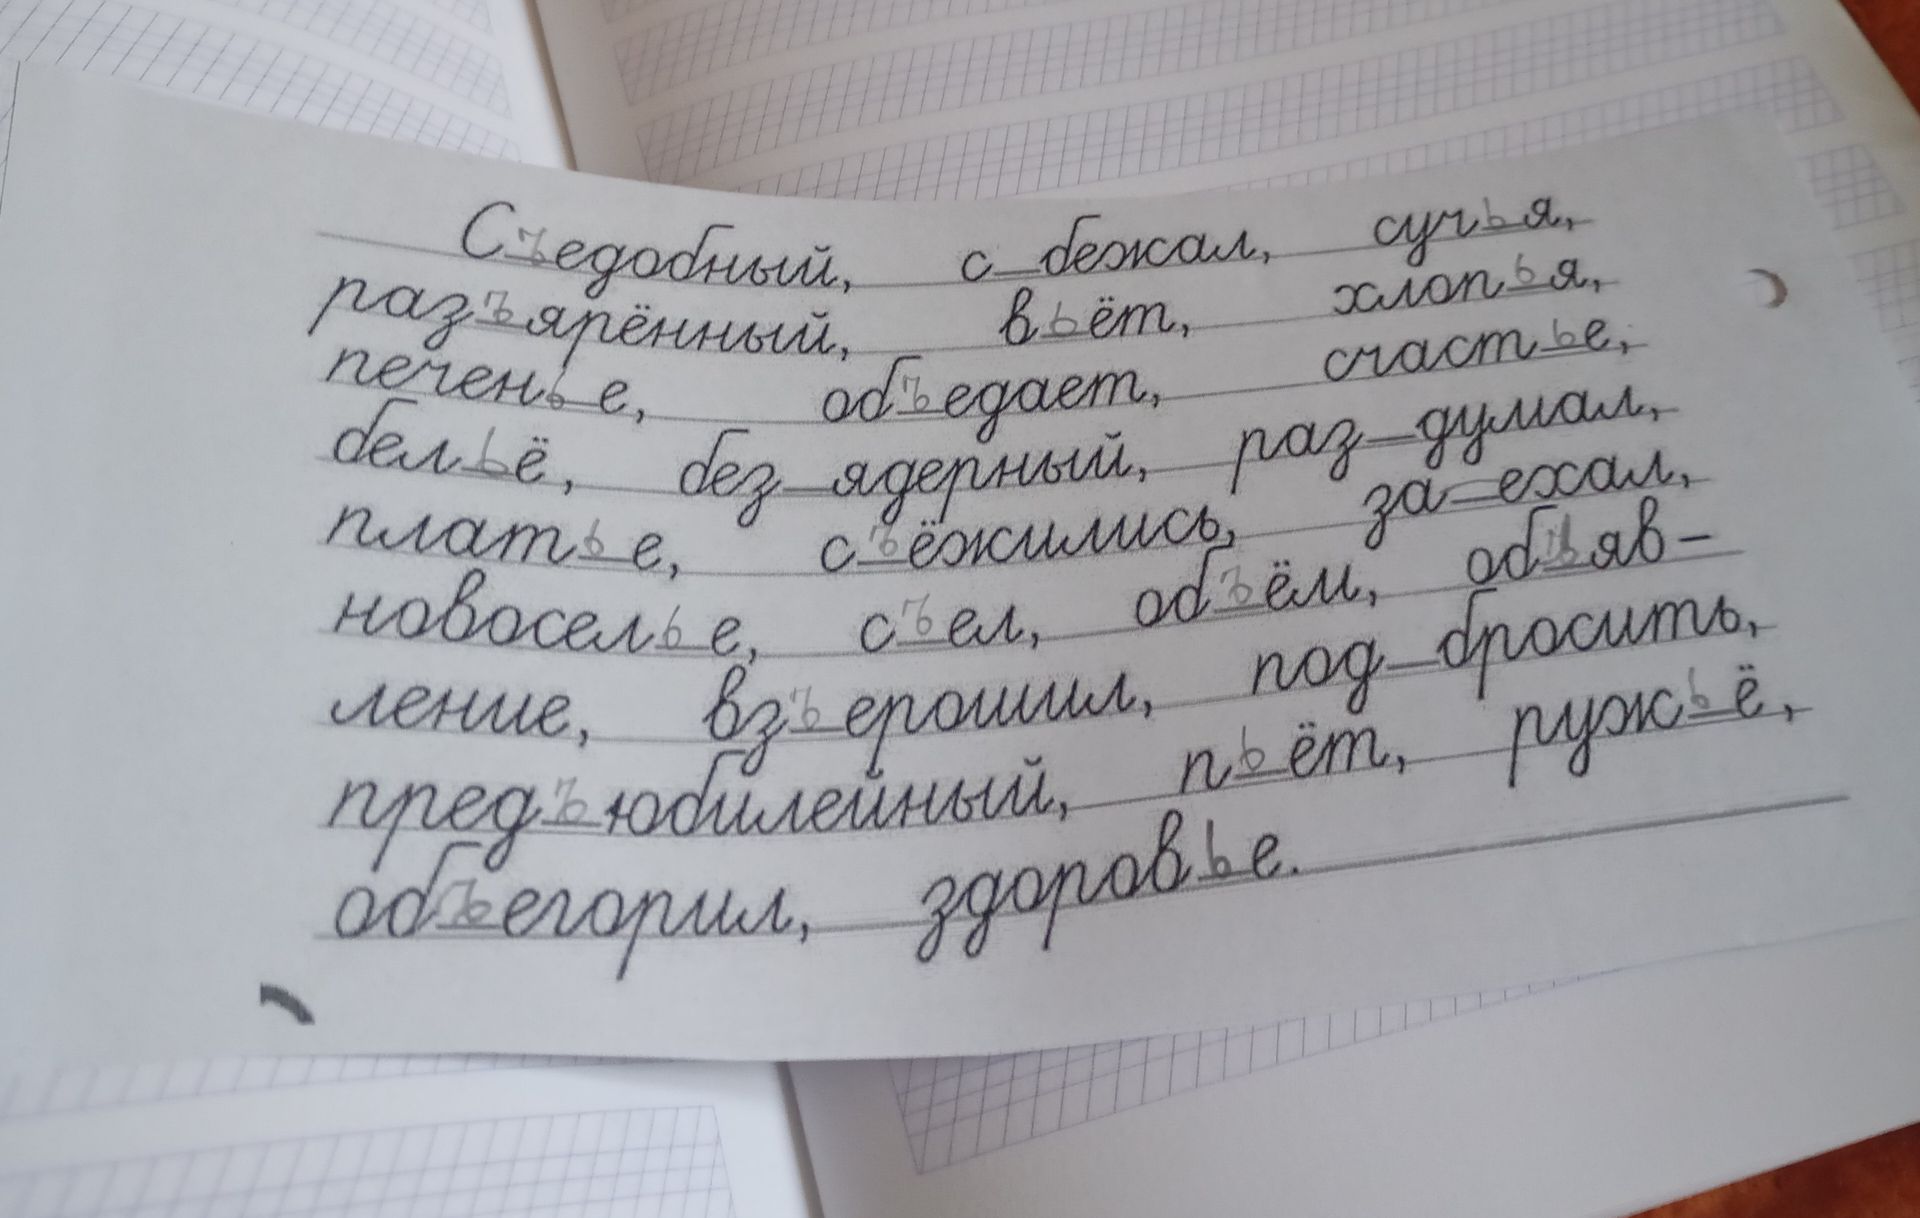 Съедобный, с_бежал, сучья,
разъярённый, вьёт, хлопья,
печенье, объедает, счастье,
бельё, без_ядерный, раз_думал,
платье, съёжились, за_ехал,
новоселье, съел, объём, объяв-
ление, взъерошил, под_бросить,
предъюбилейный, пьёт, ружьё,
объегорил, здоровье.